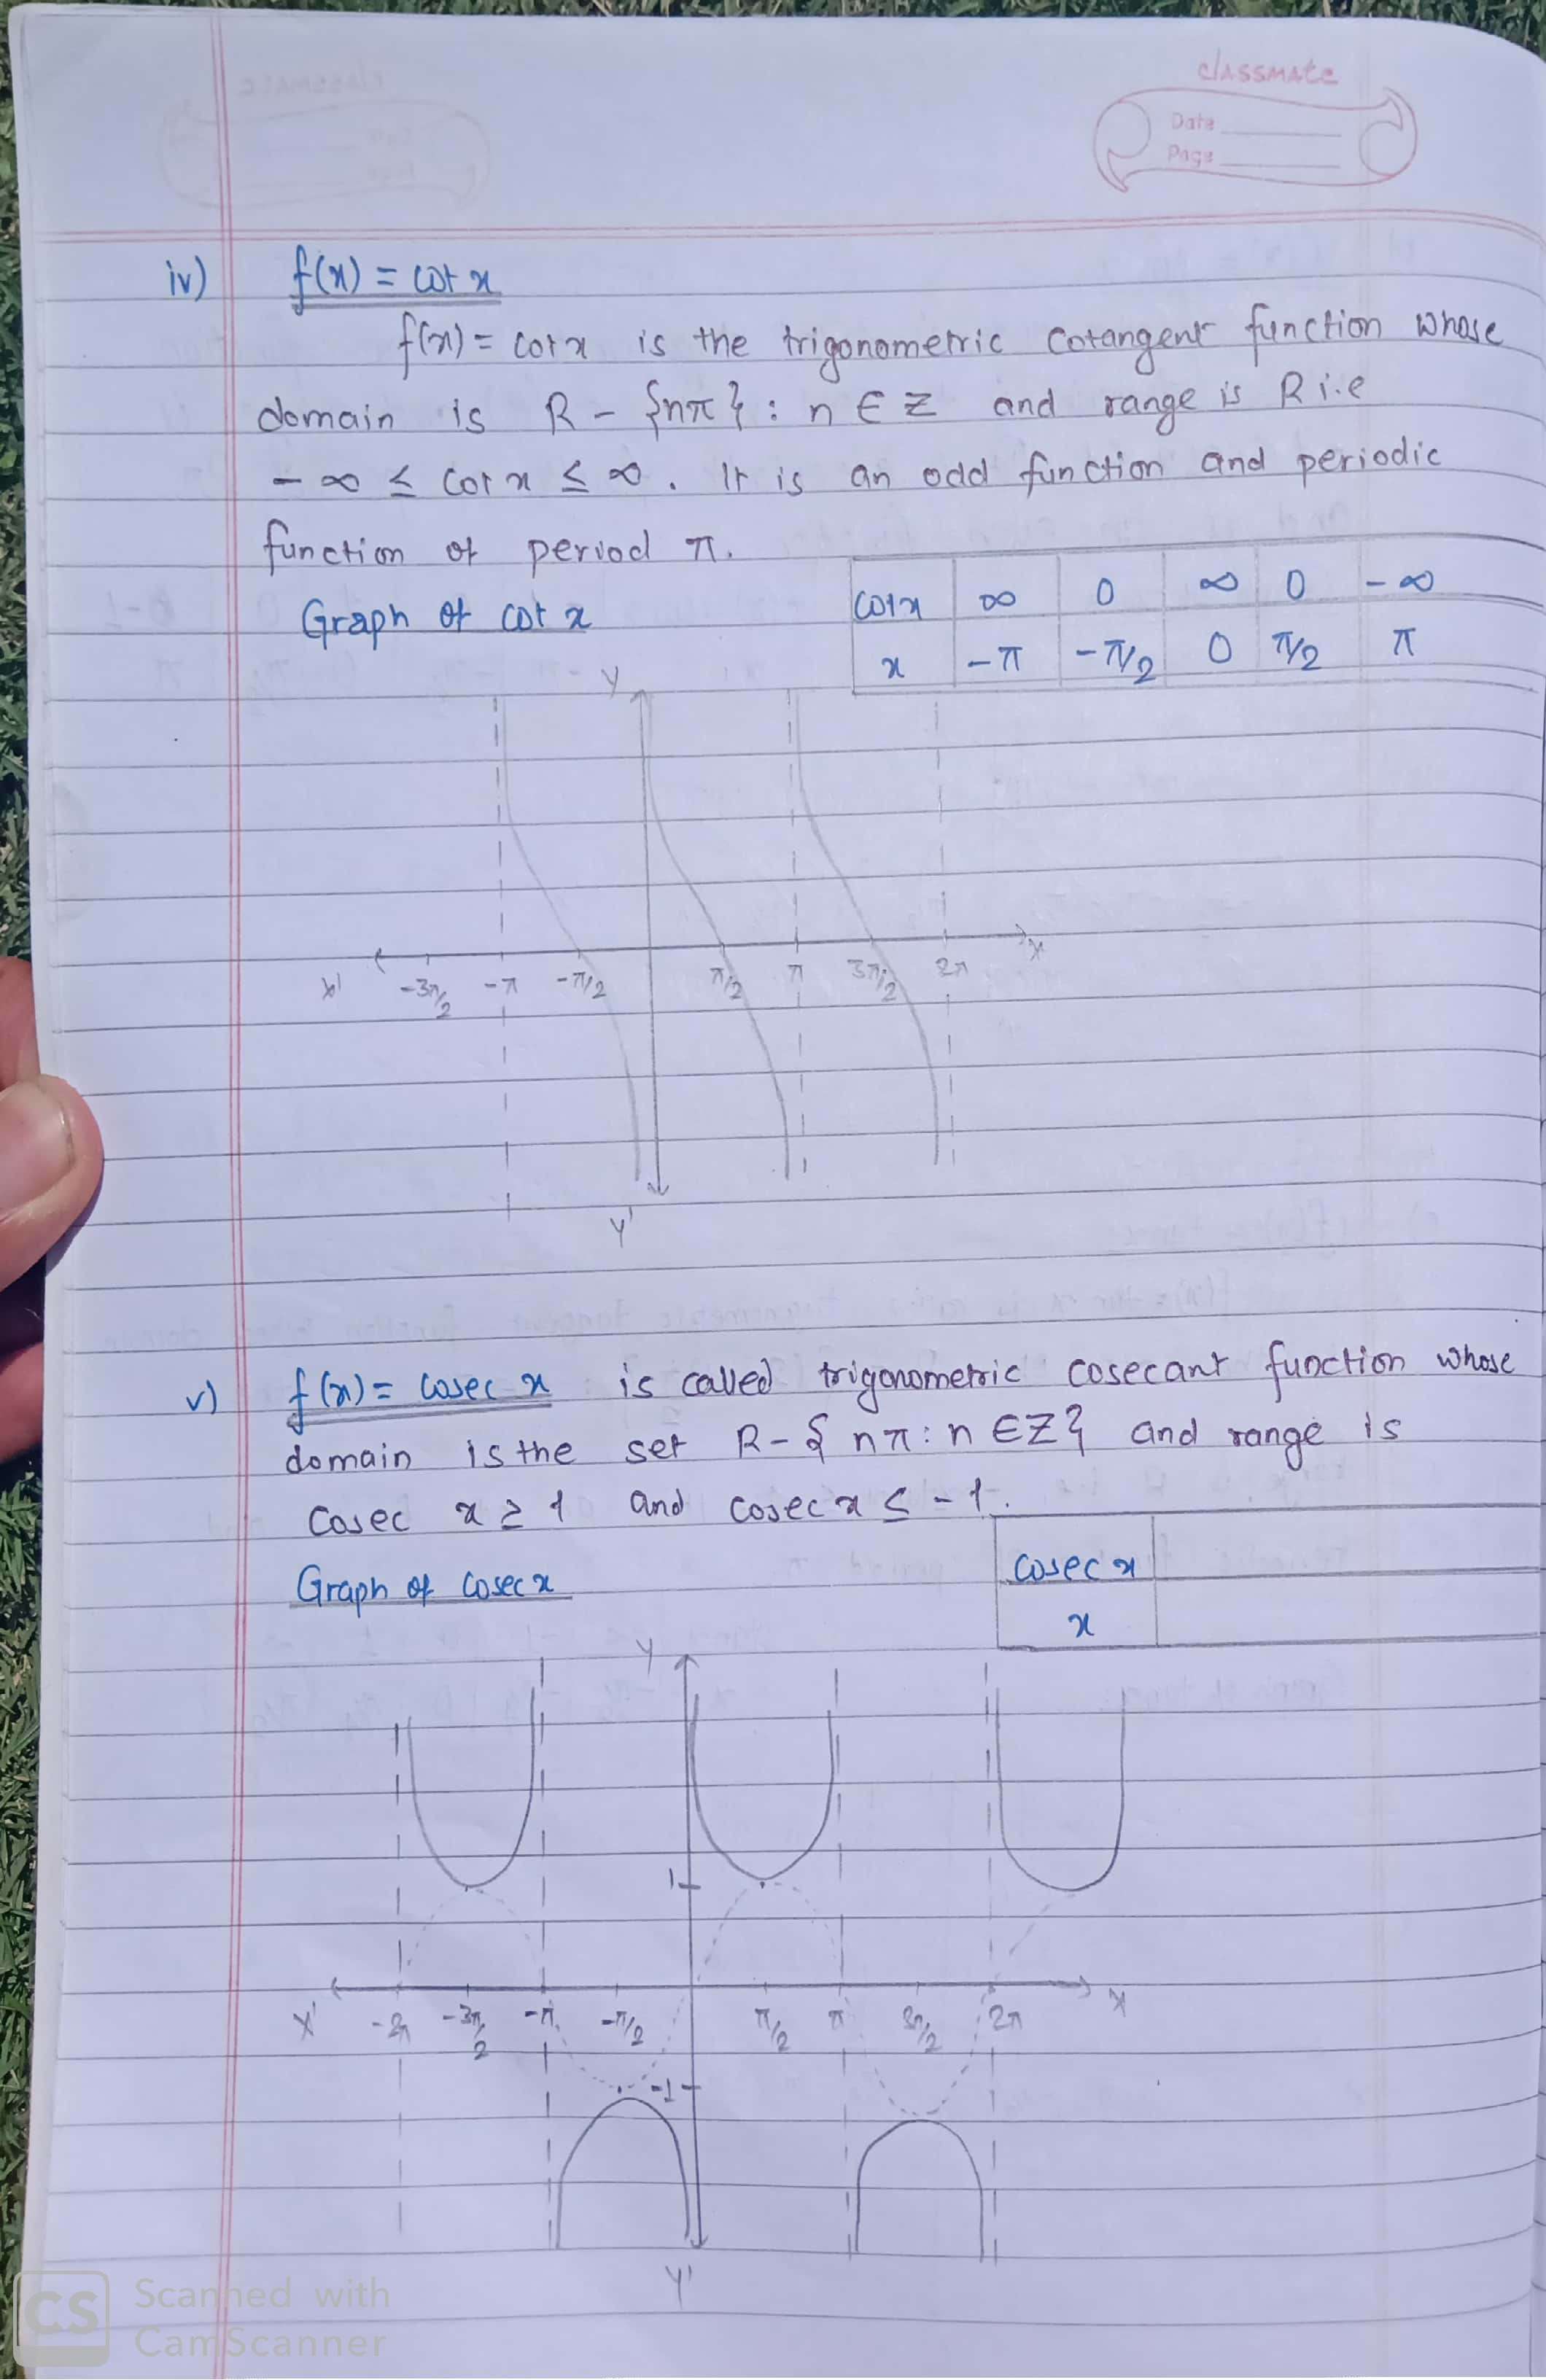 classmate
Date
Page
iv) f(x) = cot x
f(x) = cot x is the trigonometric cotangent function whose
domain is R - {nπ} : n ∈ Z and range is R i.e
- ∞ ≤ cot x ≤ ∞. It is an odd function and periodic
function of period π.
Graph of cot x
cot x ∞ 0 ∞ 0 -∞
x -π -π/2 0 π/2 π
Y
X' -3π/2 -π -π/2 π/2 π 3π/2 2π X
Y'
v) f(x) = cosec x is called trigonometric cosecant function whose
domain is the set R-{ nπ : n ∈ Z} and range is
cosec x ≥ 1 and cosec x ≤ -1.
Graph of cosec x
cosec x
x
Y
1
X' -2π -3π/2 -π -π/2 π/2 π 3π/2 2π X
-1
Y'
CS Scanned with
CamScanner